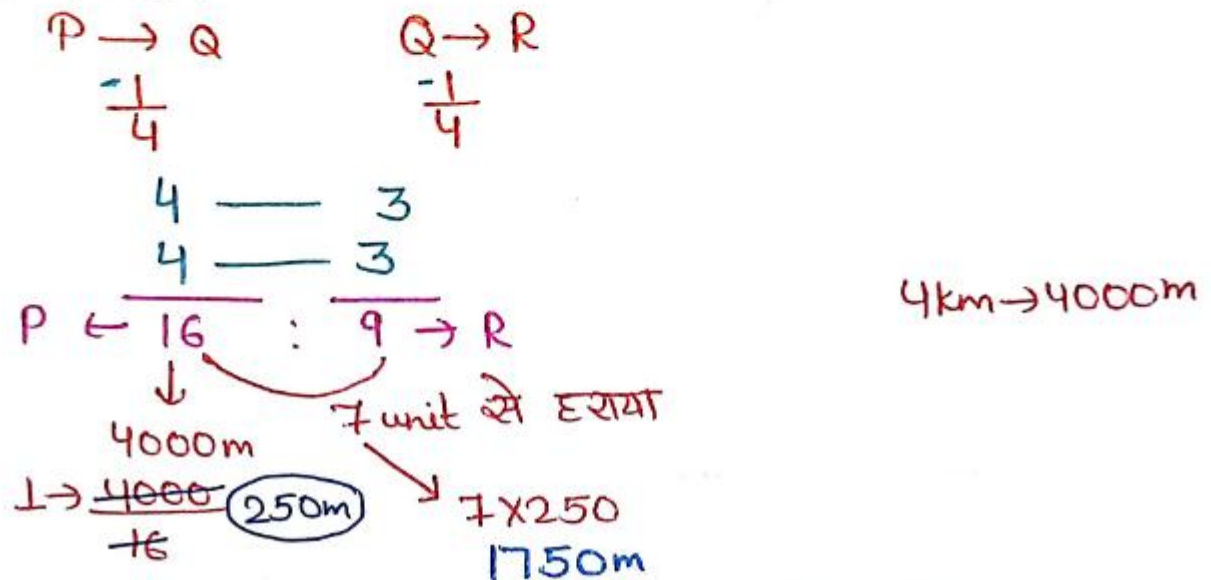 P → Q Q → R
-1/4 -1/4
4 — 3
4 — 3
P ← 16 : 9 → R
4km → 4000m
7 unit से हराया
4000m
1 → 4000/16 250m
7×250
1750m